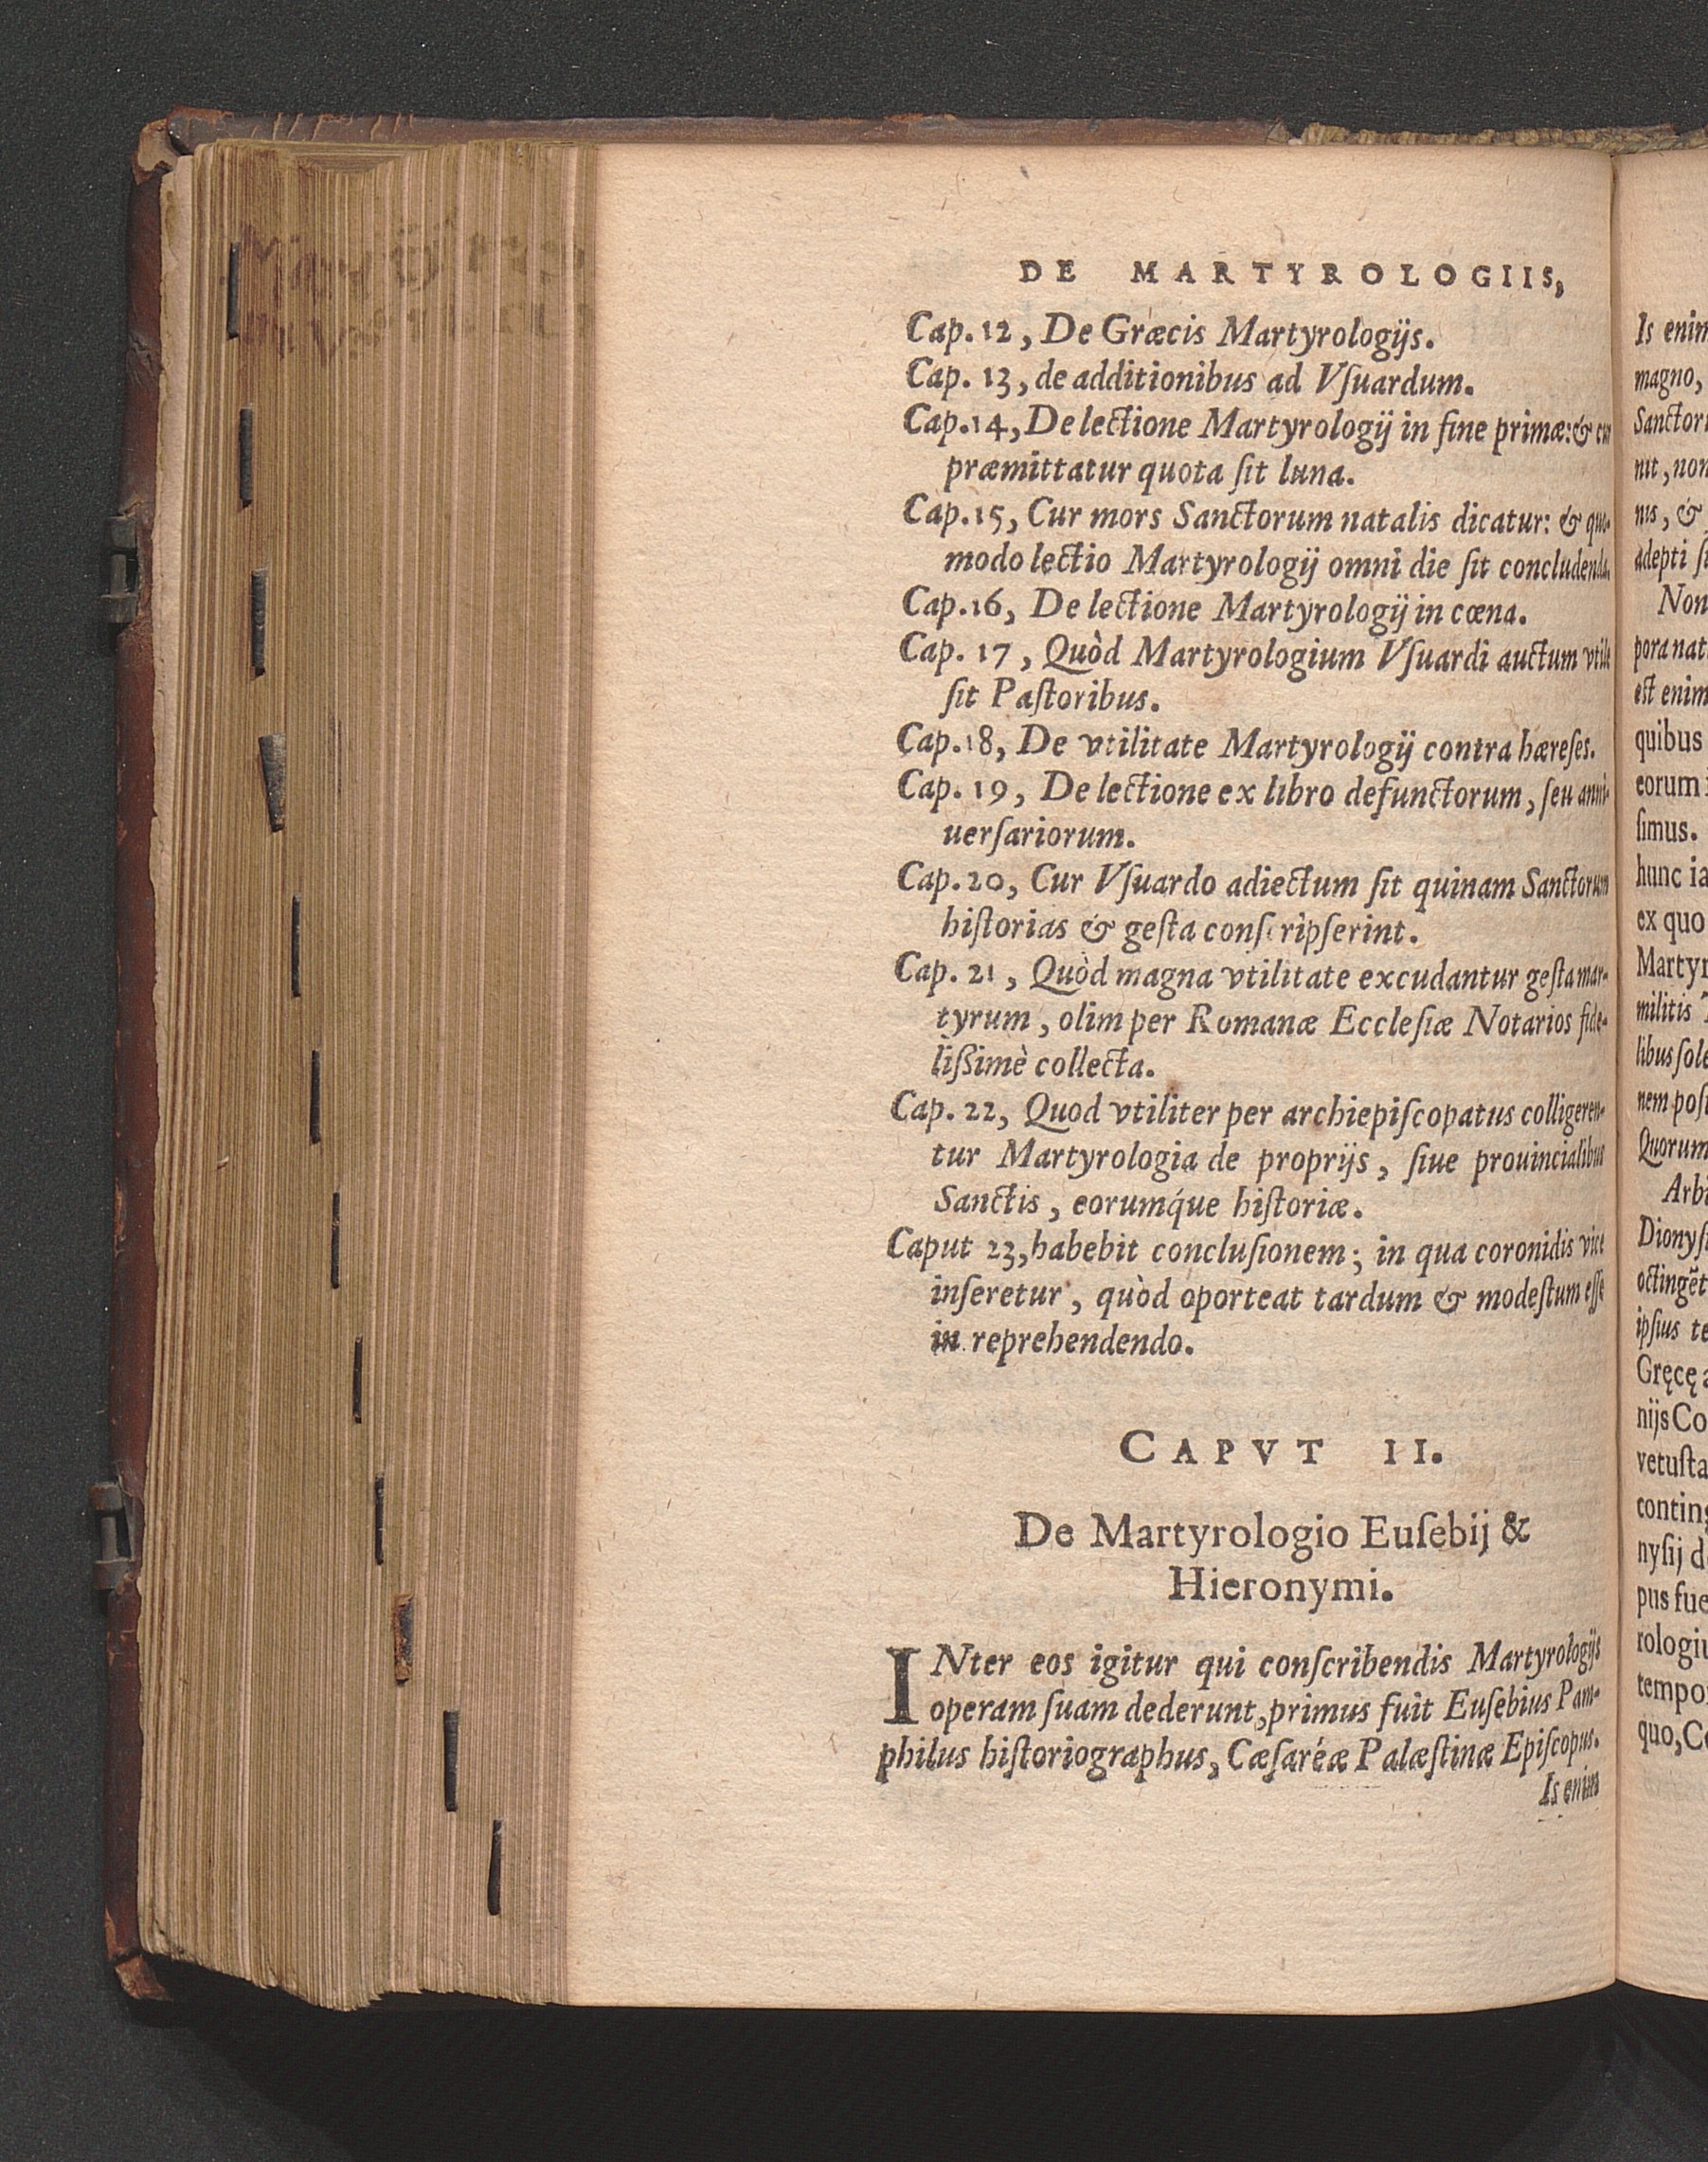 DE MARTYROLOGIIS,
Cap. 12, De Græcis Martyrologijs.
Cap. 13, de additionibus ad Vſuardum.
Cap. 14, De lectione Martyrologij in fine primæ: & cur
præmittatur quota ſit luna.
Cap. 15, Cur mors Sanctorum natalis dicatur: & quo-
modo lectio Martyrologij omni die ſit concludenda.
Cap. 16, De lectione Martyrologij in cœna.
Cap. 17, Quòd Martyrologium Vſuardi auctum vtile
ſit Paſtoribus.
Cap. 18, De vtilitate Martyrologij contra hæreſes.
Cap. 19, De lectione ex libro defunctorum, ſeu anni-
uerſariorum.
Cap. 20, Cur Vſuardo adiectum ſit quinam Sanctorum
hiſtorias & geſta conſcripſerint.
Cap. 21, Quòd magna vtilitate excudantur geſta mar-
tyrum, olim per Romanæ Eccleſiæ Notarios fide-
lißimè collecta.
Cap. 22, Quod vtiliter per archiepiſcopatus colligeren-
tur Martyrologia de proprijs, ſiue prouincialibus
Sanctis, eorumq́ue hiſtoriæ.
Caput 23, habebit concluſionem; in qua coronidis vice
inſeretur, quòd oporteat tardum & modeſtum eſſe
in reprehendendo.
CAPVT II.
De Martyrologio Euſebij &
Hieronymi.
INter eos igitur qui conſcribendis Martyrologijs
operam ſuam dederunt, primus fuit Euſebius Pam-
philus hiſtoriographus, Cæſaréæ Palæſtinæ Epiſcopus.
Is enim
Is enim
magno,
Sanctor
nit, non
nis, &
adepti ſi
Non
pora nat
eſt enim
quibus
eorum
ſimus.
hunc ia
ex quo
Martyr
militis
libus ſole
nem poſ
Quorum
Arbi
Dionyſ
octingẽt
ipſius te
Gręcę a
nijs Co
vetuſta
conting
nyſij d
pus fue
rologiu
tempor
quo, Co